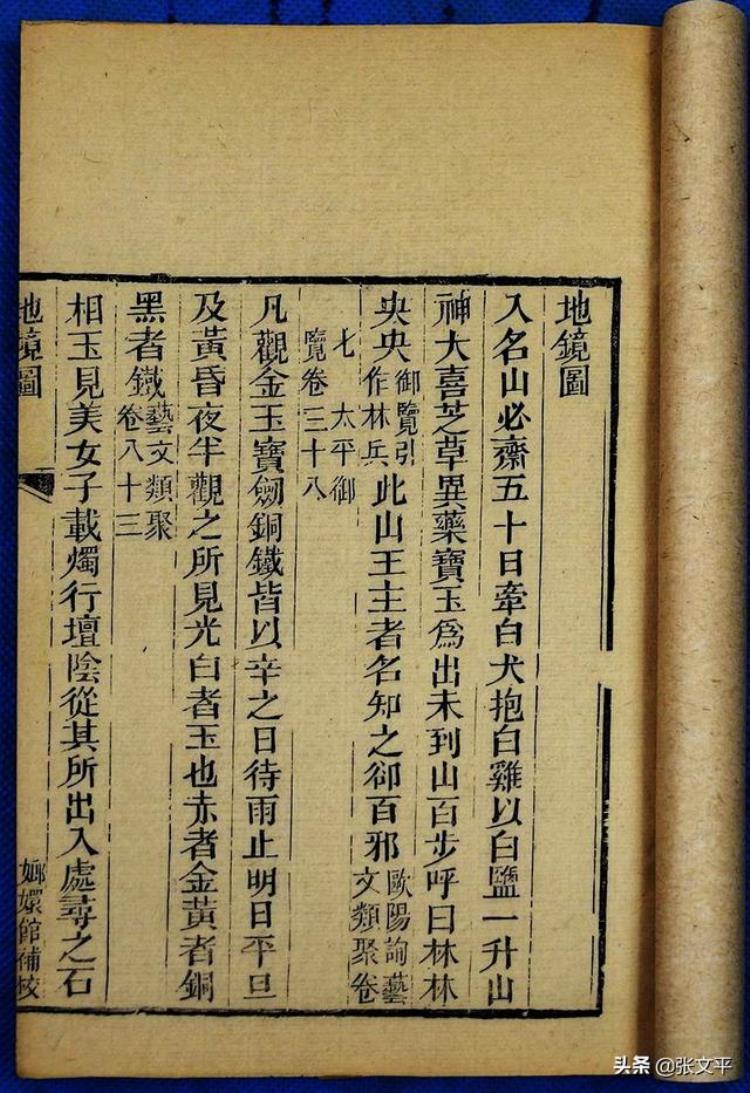 地鏡圖
入名山必齋五十日牽白犬抱白雞以白鹽一升山
神大喜芝草異藥寶玉爲出未到山百步呼曰林林
央央御覽引作林兵此山王主者名知之卻百邪歐陽詢藝文類聚卷
七　太平御覽卷三十八
凡觀金玉寶劒銅鐵皆以辛之日待雨止明日平旦
及黃昏夜半觀之所見光白者玉也赤者金黃者銅
黑者鐵藝文類聚卷八十三
相玉見美女子載燭行壇陰從其所出入處尋之石
地鏡圖
嫏嬛館補校
头条 @张文平